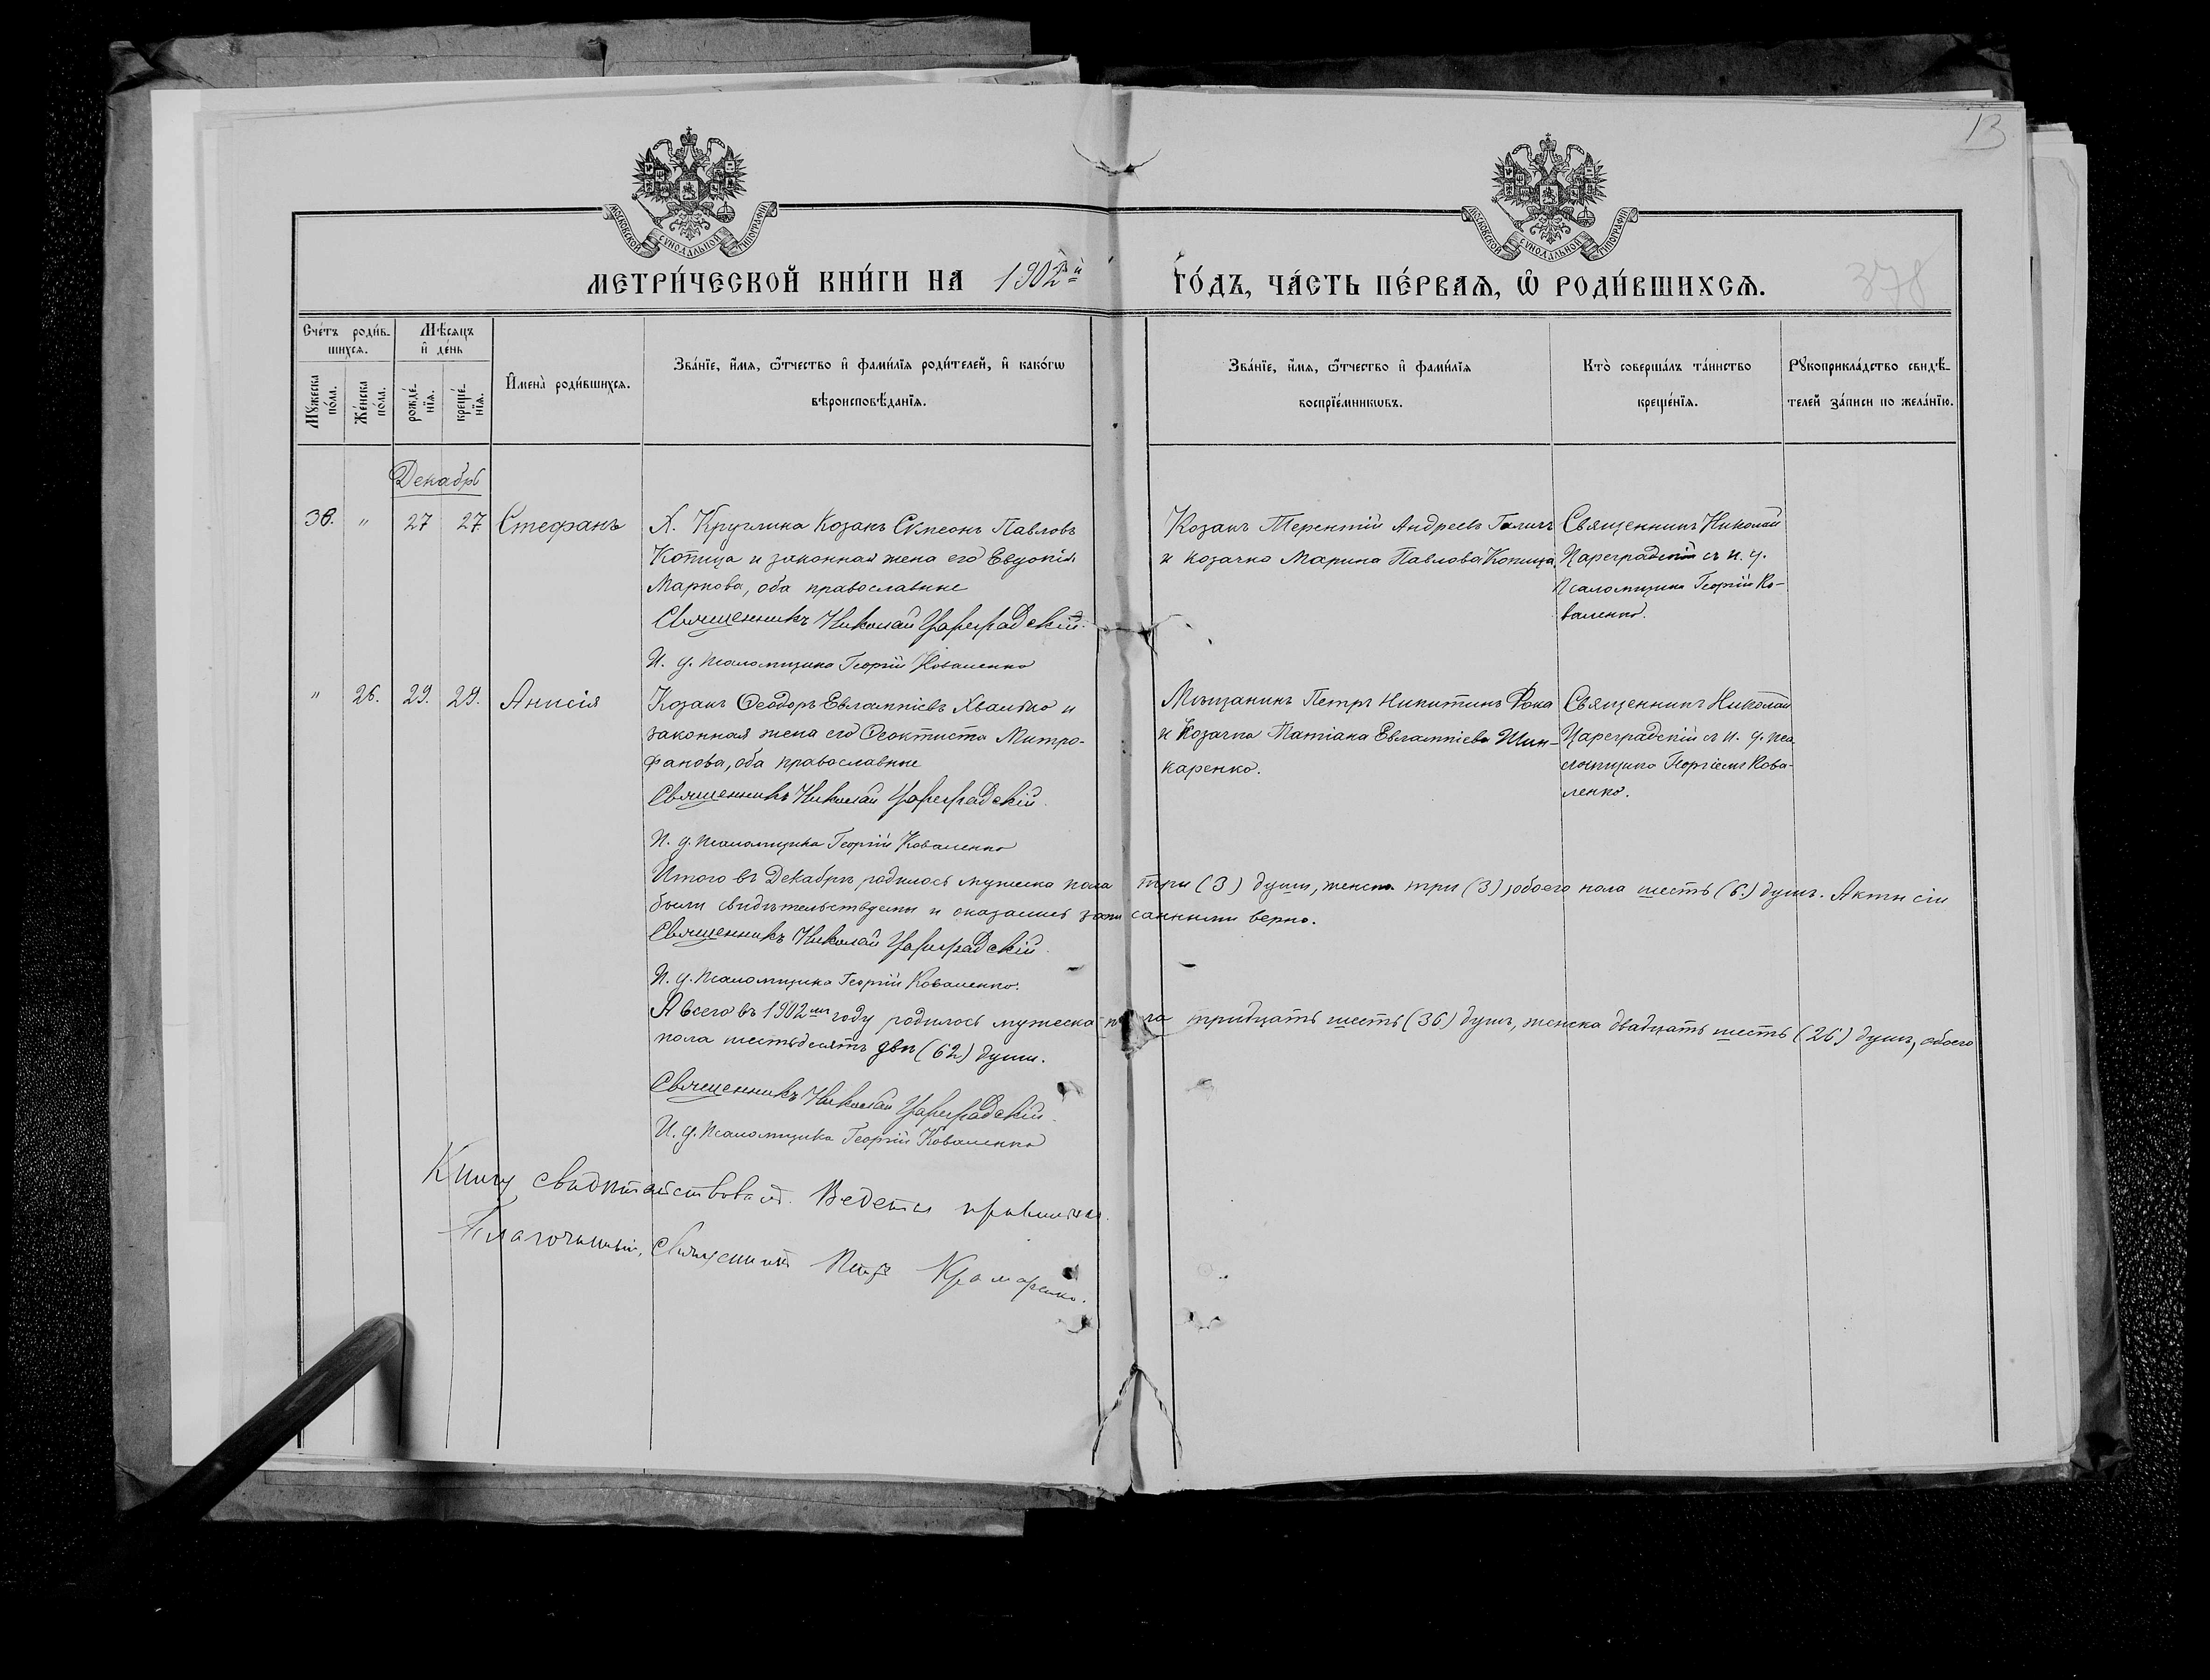 13
МОСКОВСКОЙ СѴНОДАЛЬНОЙ ТИПОГРАФІИ
МОСКОВСКОЙ СѴНОДАЛЬНОЙ ТИПОГРАФІИ
МЕТРИ́ЧЕСКОЙ КНИ́ГИ НА 1902й ГО́ДЪ, ЧА́СТЬ ПЕ́РВАѦ, Ѡ҆ РОДИ́ВШИХСѦ.
378
Сче́тъ роди́в-
шихсѧ.
Мѣ́сѧцъ
и҆ де́нь
Мꙋ́жеска
по́ла.
Же́нска
по́ла.
рожде́-
нїѧ.
креще́-
нїѧ.
И҆мена̀ роди́вшихсѧ.
Зва́нїе, и҆́мѧ, ѻ҆́тчество и҆ фами́лїѧ роди́телей, и҆ како́гѡ
вѣроисповѣ́данїѧ.
Зва́нїе, и҆́мѧ, ѻ҆́тчество и҆ фами́лїѧ
воспрїе́мникѡвъ.
Кто̀ соверша́лъ та́инство
креще́нїѧ.
Рꙋкоприкла́дство свидѣ́-
телей за́писи по жела́нїю.
Декабрь
36. " 27 27 Стефанъ
Х. Круглика Козакъ Симеонъ Павловъ
Копица и законная жена его Евдокія
Маркова, оба православные
Священникъ Николай Цареградскій.
И. д. псаломщика Георгій Коваленко
Козакъ Терентій Андреевъ Галичъ
и козачка Марина Павлова Копица
Священникъ Николай
Цареградскій съ и. д.
псаломщика Георгій Ко-
валенко.
" 26. 29. 29. Анисія
Козакъ Ѳеодоръ Евлампіевъ и
законная жена его Ѳеоктиста Митро-
фанова, оба православные
Священникъ Николай Цареградскій.
И. д. псаломщика Георгій Коваленко
Мѣщанинъ Петръ Никитинъ Фока
и Козачка Татіана Евлампіева Шин-
каренко.
Священникъ Николай
Цареградскій съ и. д. пса
ломщика Георгіемъ Кова-
ленко.
Итого въ Декабрѣ родилось мужеска пола три (3) души, женска три (3), обоего пола шесть (6.) душъ. Акты сіи
были свидѣтельствуемы и оказались записанными верно.
Священникъ Николай Цареградскій.
И. д. псаломщика Георгій Коваленко.
А всего въ 1902мъ году родилось мужеска пола тридцать шесть (36) душъ, женска двадцать шесть (26) душъ, обоего
пола шестьдесятъ двѣ (62) души.
Священникъ Николай Цареградскій.
И. д. псаломщика Георгій Коваленко
Книгу свидѣтельствовалъ. Ведется правильно.
Благочинный, Священникъ Крамаренко.